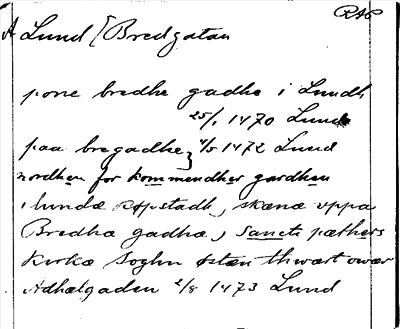 RAP
A Lund [Bredgatan
pone bredhe gadhe i Lundh
25/1 1470 Lund
paa bregadhe } 4/5 1472 Lund
nordhen for kommendher gardhen
i lundæ køpstadh, skæna vppa
Bredhæ gadhæ, sancti pæthers
kirkæ soghn østæn thwært owær
Adhælgaden 2/8 1473 Lund